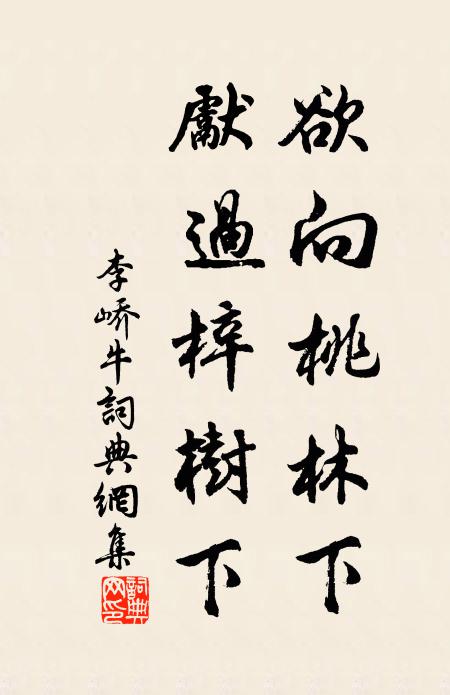 欲向桃林下
獻過梓樹下
李嶠牛詞典網集
詞典网印